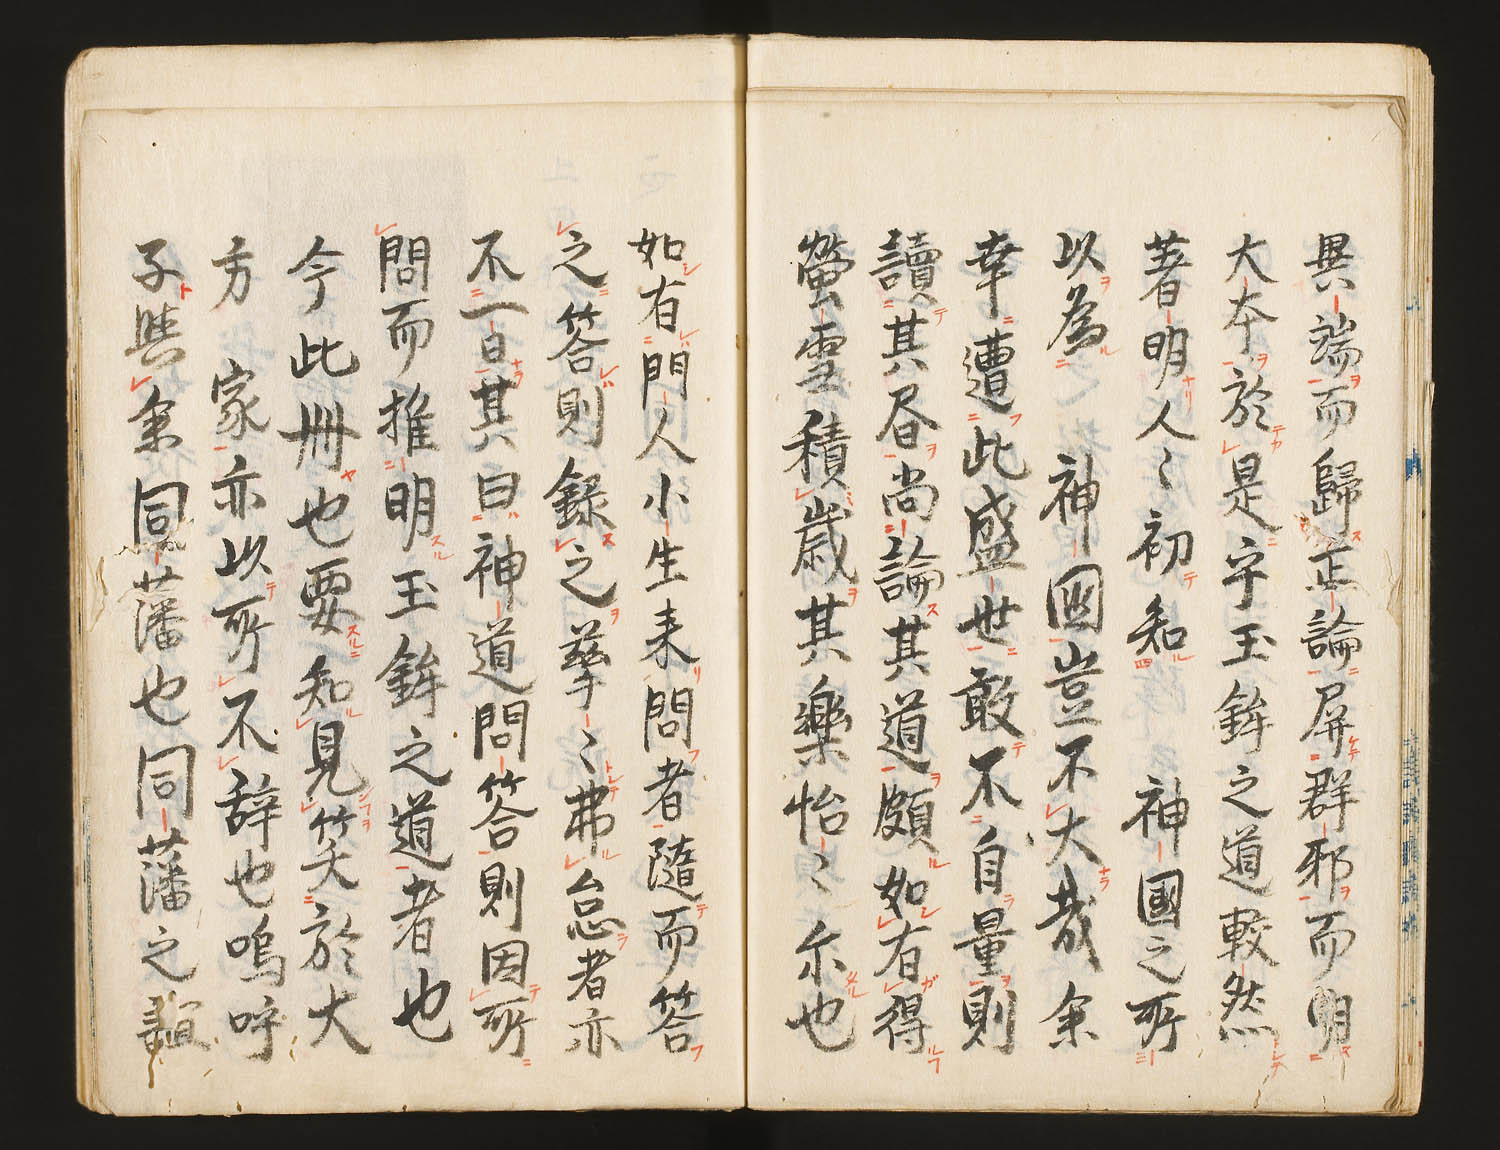 異端而歸正論屏群邪而明
大本於是乎玉鉾之道較然
著明人〻初知　神國之所
以為　神國豈不大哉余
幸遭此盛世敢不自量則
讀其昏尚論其道頗如有得
螢雪積歳其樂怡〻尓也
如有門人小生来問者隨而答
之答則錄之孳〻弗怠者亦
不一日其曰神道問答則因所
問而推明玉鉾之道者也
今此冊也要知見笑於大
方　家亦以所不辞也嗚呼
子與余同藩也同藩之誼